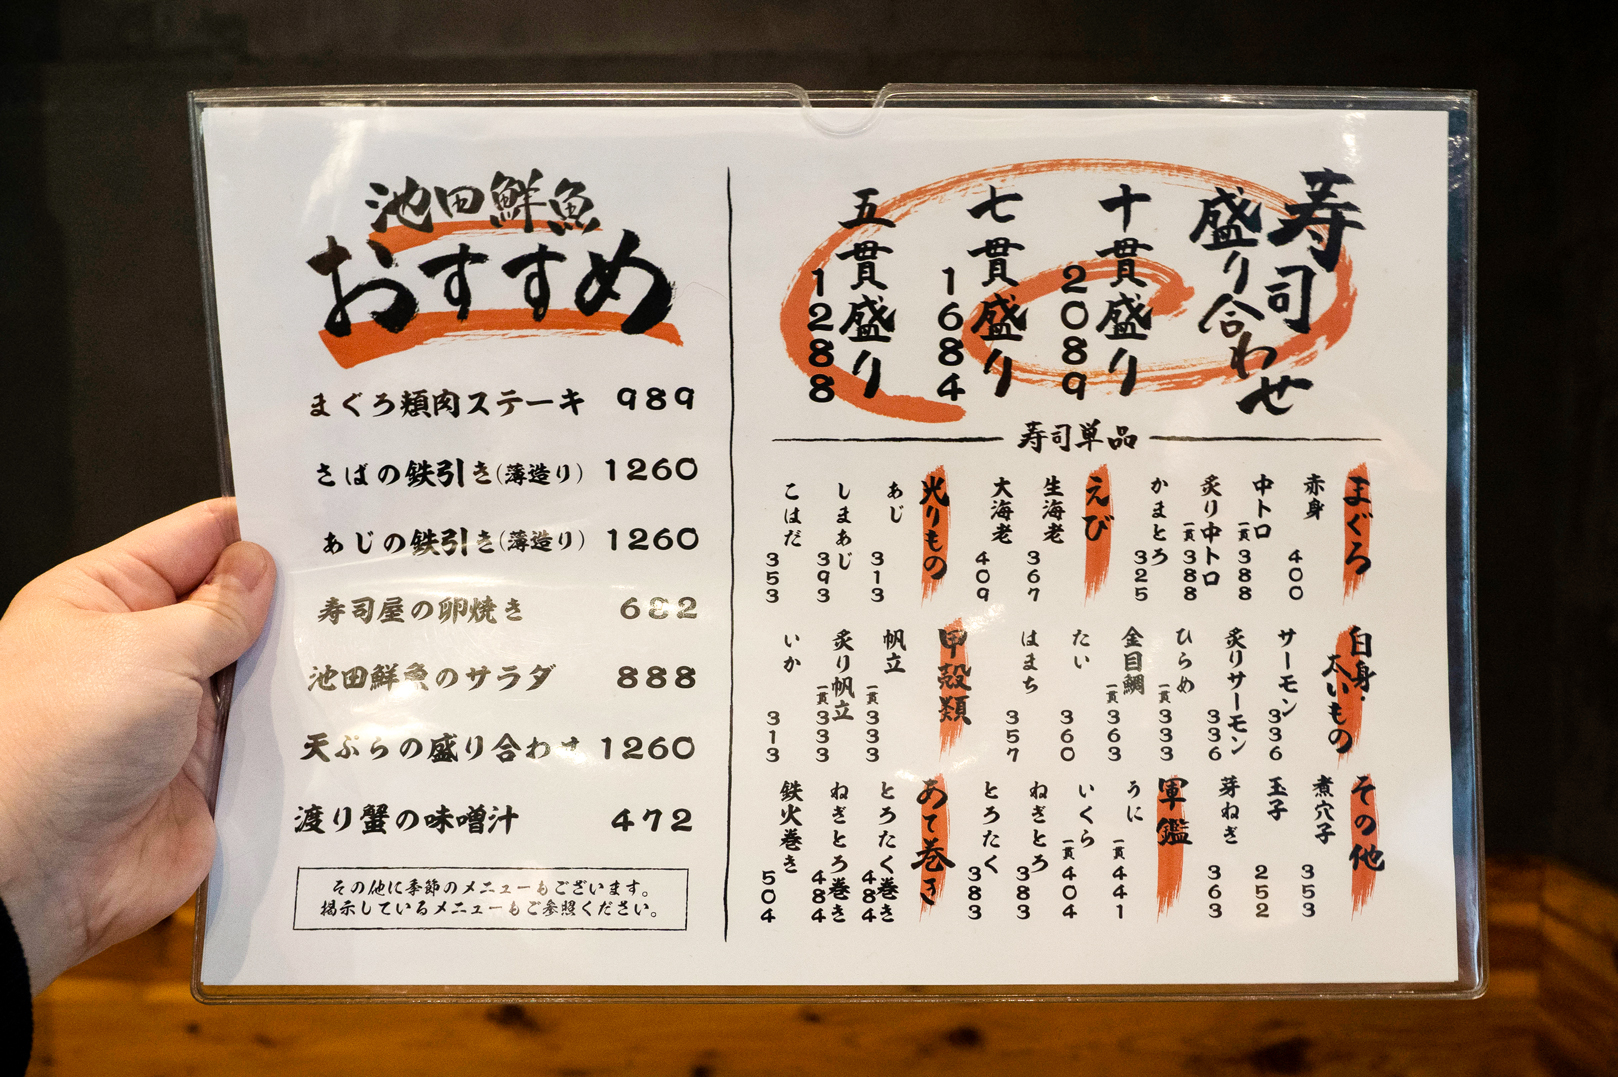 池田鮮魚
おすすめ
まぐろ頬肉ステーキ 989
さばの鉄引き(薄造り) 1260
あじの鉄引き(薄造り) 1260
寿司屋の卵焼き 682
池田鮮魚のサラダ 888
天ぷらの盛り合わせ 1260
渡り蟹の味噌汁 472
その他に季節のメニューもございます。
掲示しているメニューもご参照ください。
寿司
盛り合わせ
十貫盛り 2089
七貫盛り 1684
五貫盛り 1288
寿司単品
まぐろ
赤身 400
中トロ 一貫388
炙り中トロ 一貫388
かまとろ 325
えび
生海老 367
大海老 409
光りもの
あじ 313
しまあじ 393
こはだ 353
白身・太いもの
サーモン 336
炙りサーモン 336
ひらめ 一貫333
金目鯛 一貫363
たい 360
はまち 357
甲殻類
帆立 一貫333
炙り帆立 一貫333
いか 313
その他
煮穴子 353
玉子 252
芽ねぎ 363
軍鑑
うに 一貫441
いくら 一貫404
ねぎとろ 383
とろたく 383
あて巻き
とろたく巻き 484
ねぎとろ巻き 484
鉄火巻き 504